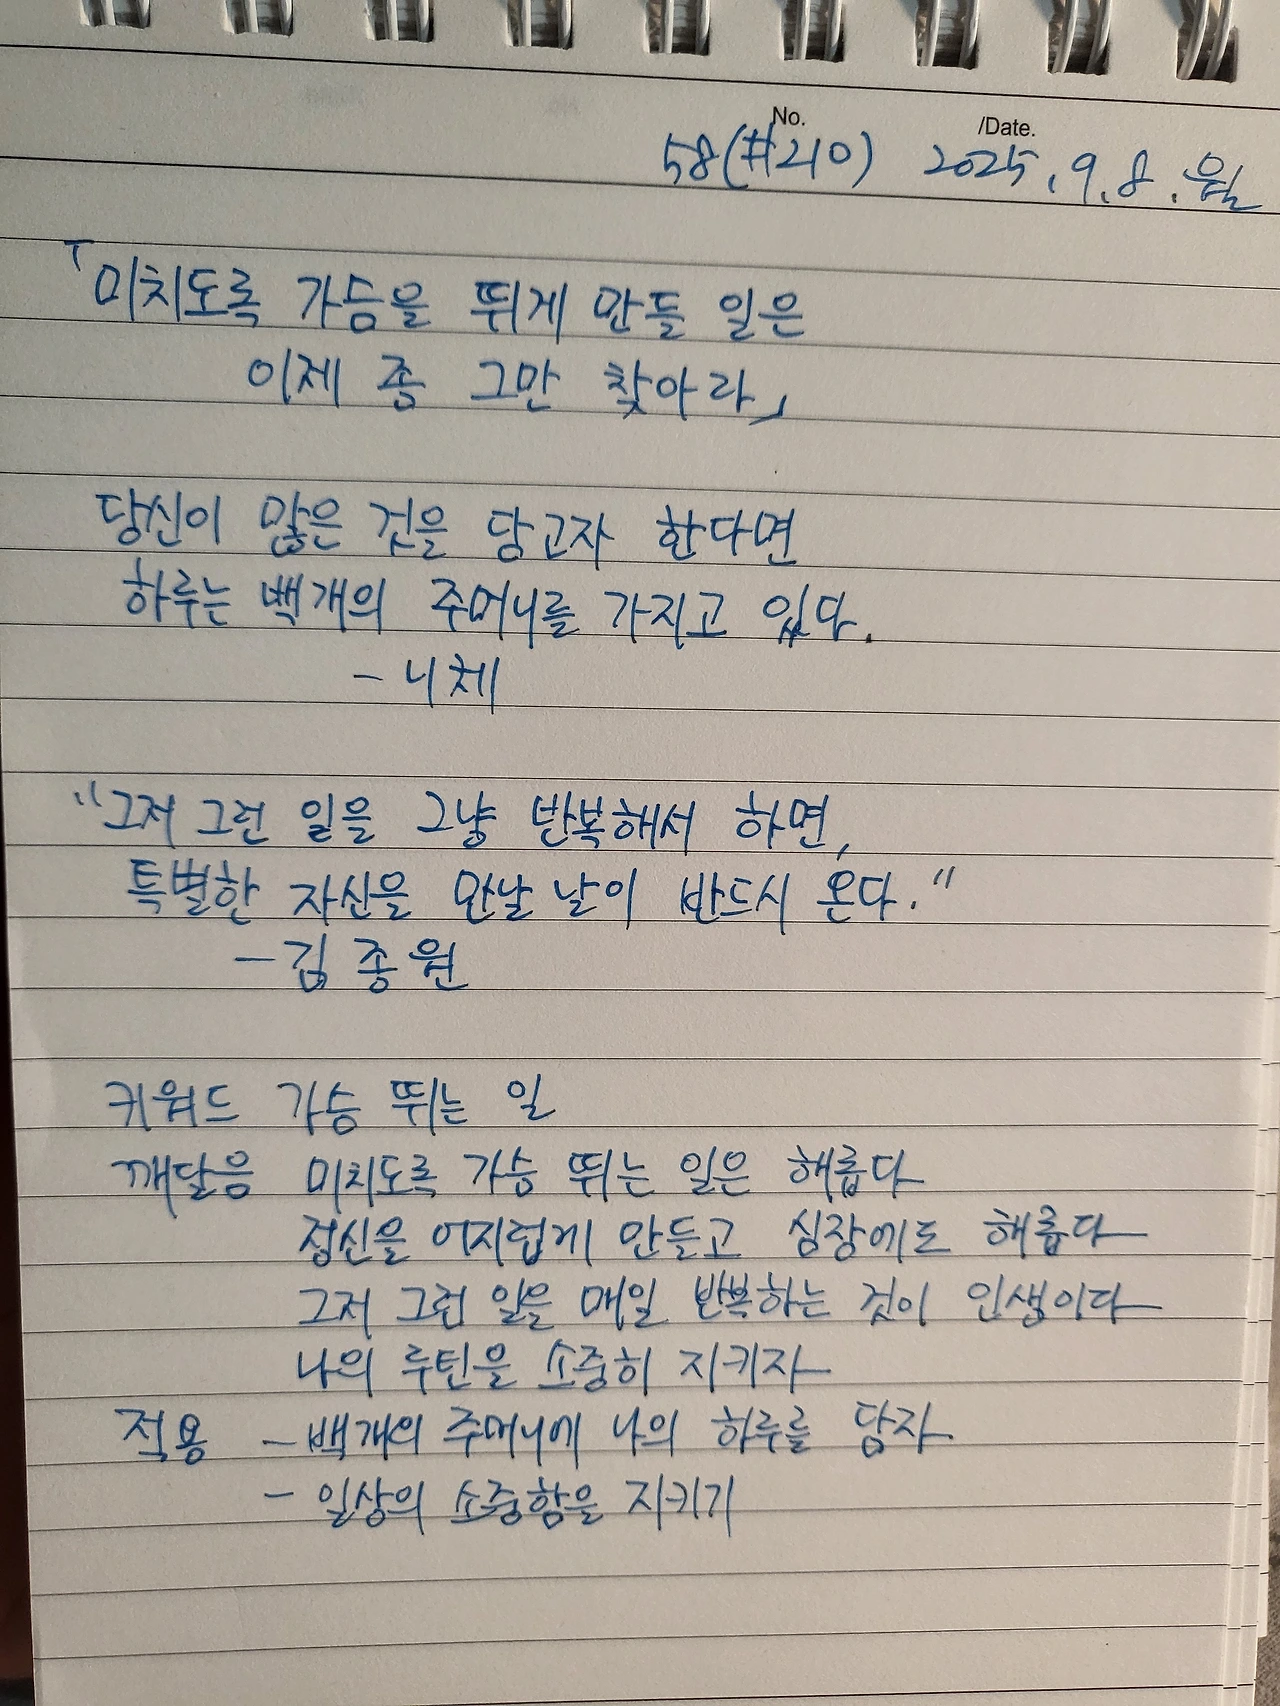 No. /Date.
58(#210) 2025.9.8.월
「미치도록 가슴을 뛰게 만들 일은
이제 좀 그만 찾아라」
당신이 많은 것을 담고자 한다면
하루는 백개의 주머니를 가지고 있다.
- 니체
"그저 그런 일을 그냥 반복해서 하면,
특별한 자신을 만날 날이 반드시 온다."
- 김종원
키워드 가슴 뛰는 일
깨달음 미치도록 가슴 뛰는 일은 해롭다
정신을 어지럽게 만들고 심장에도 해롭다
그저 그런 일을 매일 반복하는 것이 인생이다
나의 루틴을 소중히 지키자
적용 - 백개의 주머니에 나의 하루를 담자
- 일상의 소중함을 지키기